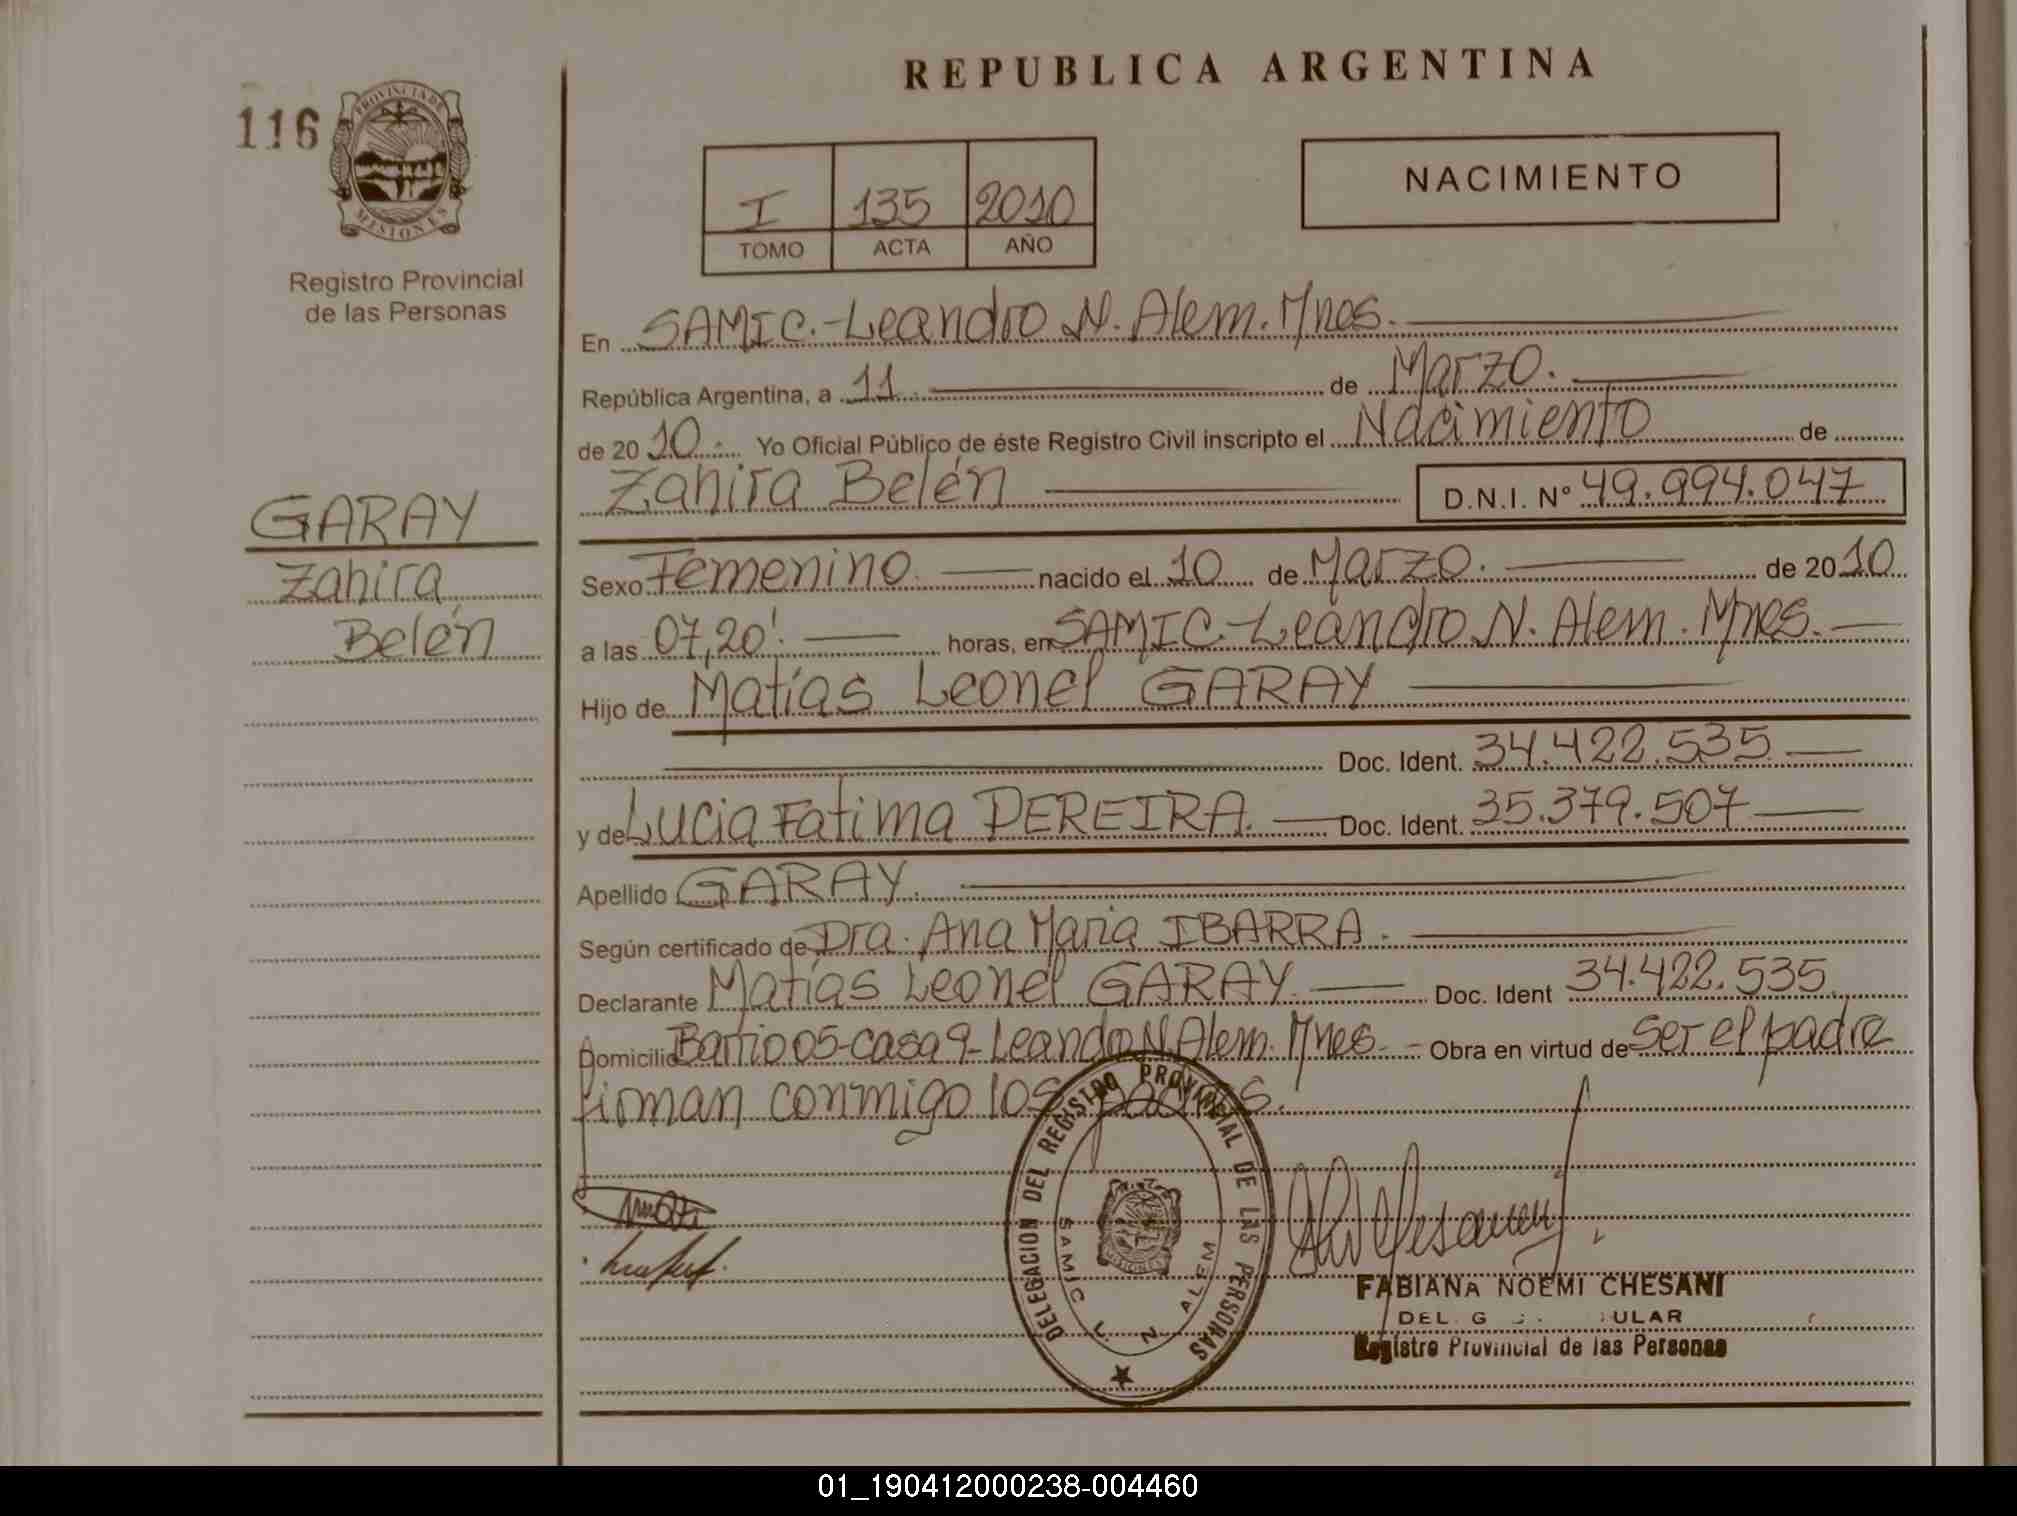 REPUBLICA ARGENTINA
116
PROVINCIA DE
MISIONES
Registro Provincial
de las Personas
NACIMIENTO
I 135 2010
TOMO ACTA AÑO
En SAMIC.-Leandro N. Alem. Mnes.
República Argentina, a 11 de Marzo.
de 20 10. Yo Oficial Público de éste Registro Civil inscripto el Nacimiento de
Zahira Belén D.N.I. Nº 49.994.047
GARAY
Zahira
Belén
Sexo Femenino nacido el 10 de Marzo. de 20 10
a las 07,20'. horas, en SAMIC.-Leandro N. Alem. Mnes.
Hijo de Matías Leonel GARAY
Doc. Ident. 34.422.535
y de Lucia Fatima PEREIRA. Doc. Ident. 35.379.507
Apellido GARAY.
Según certificado de Dra. Ana Maria IBARRA.
Declarante Matías Leonel GARAY. Doc. Ident 34.422.535.
Domicilio Barrio 05-casa 9-Leandro N. Alem. Mnes. Obra en virtud de ser el padre
firman conmigo los padres.
DELEGACION DEL REGISTRO PROVINCIAL DE LAS PERSONAS
SAMIC L. N. ALEM
MISIONES
FABIANA NOEMI CHESANI
DEL G ULAR
Registro Provincial de las Personas
01_190412000238-004460